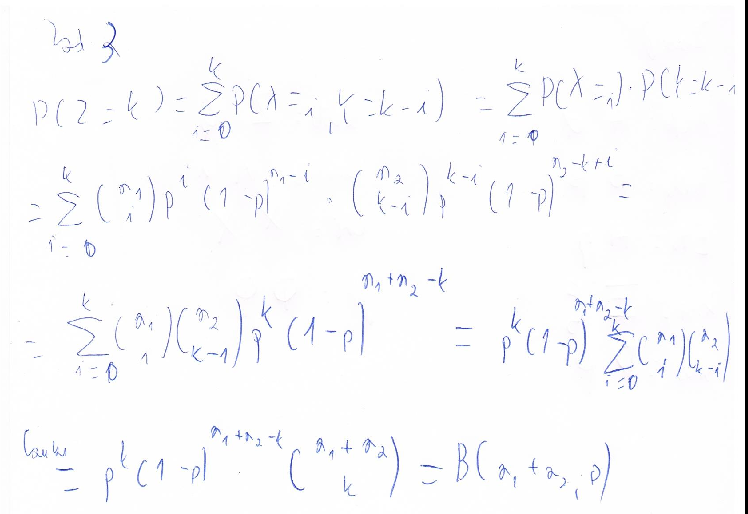 Zad 3
P(Z=k) = \sum_{i=0}^{k} P(X=i, Y=k-i) = \sum_{i=0}^{k} P(X=i) \cdot P(Y=k-i
= \sum_{i=0}^{k} \binom{n_1}{i} p^i (1-p)^{n_1-i} \cdot \binom{n_2}{k-i} p^{k-i} (1-p)^{n_2-k+i} =
= \sum_{i=0}^{k} \binom{n_1}{i} \binom{n_2}{k-i} p^k (1-p)^{n_1+n_2-k} = p^k (1-p)^{n_1+n_2-k} \sum_{i=0}^{k} \binom{n_1}{i} \binom{n_2}{k-i}
= p^k (1-p)^{n_1+n_2-k} \cdot \binom{n_1+n_2}{k} = B(n_1+n_2, p)